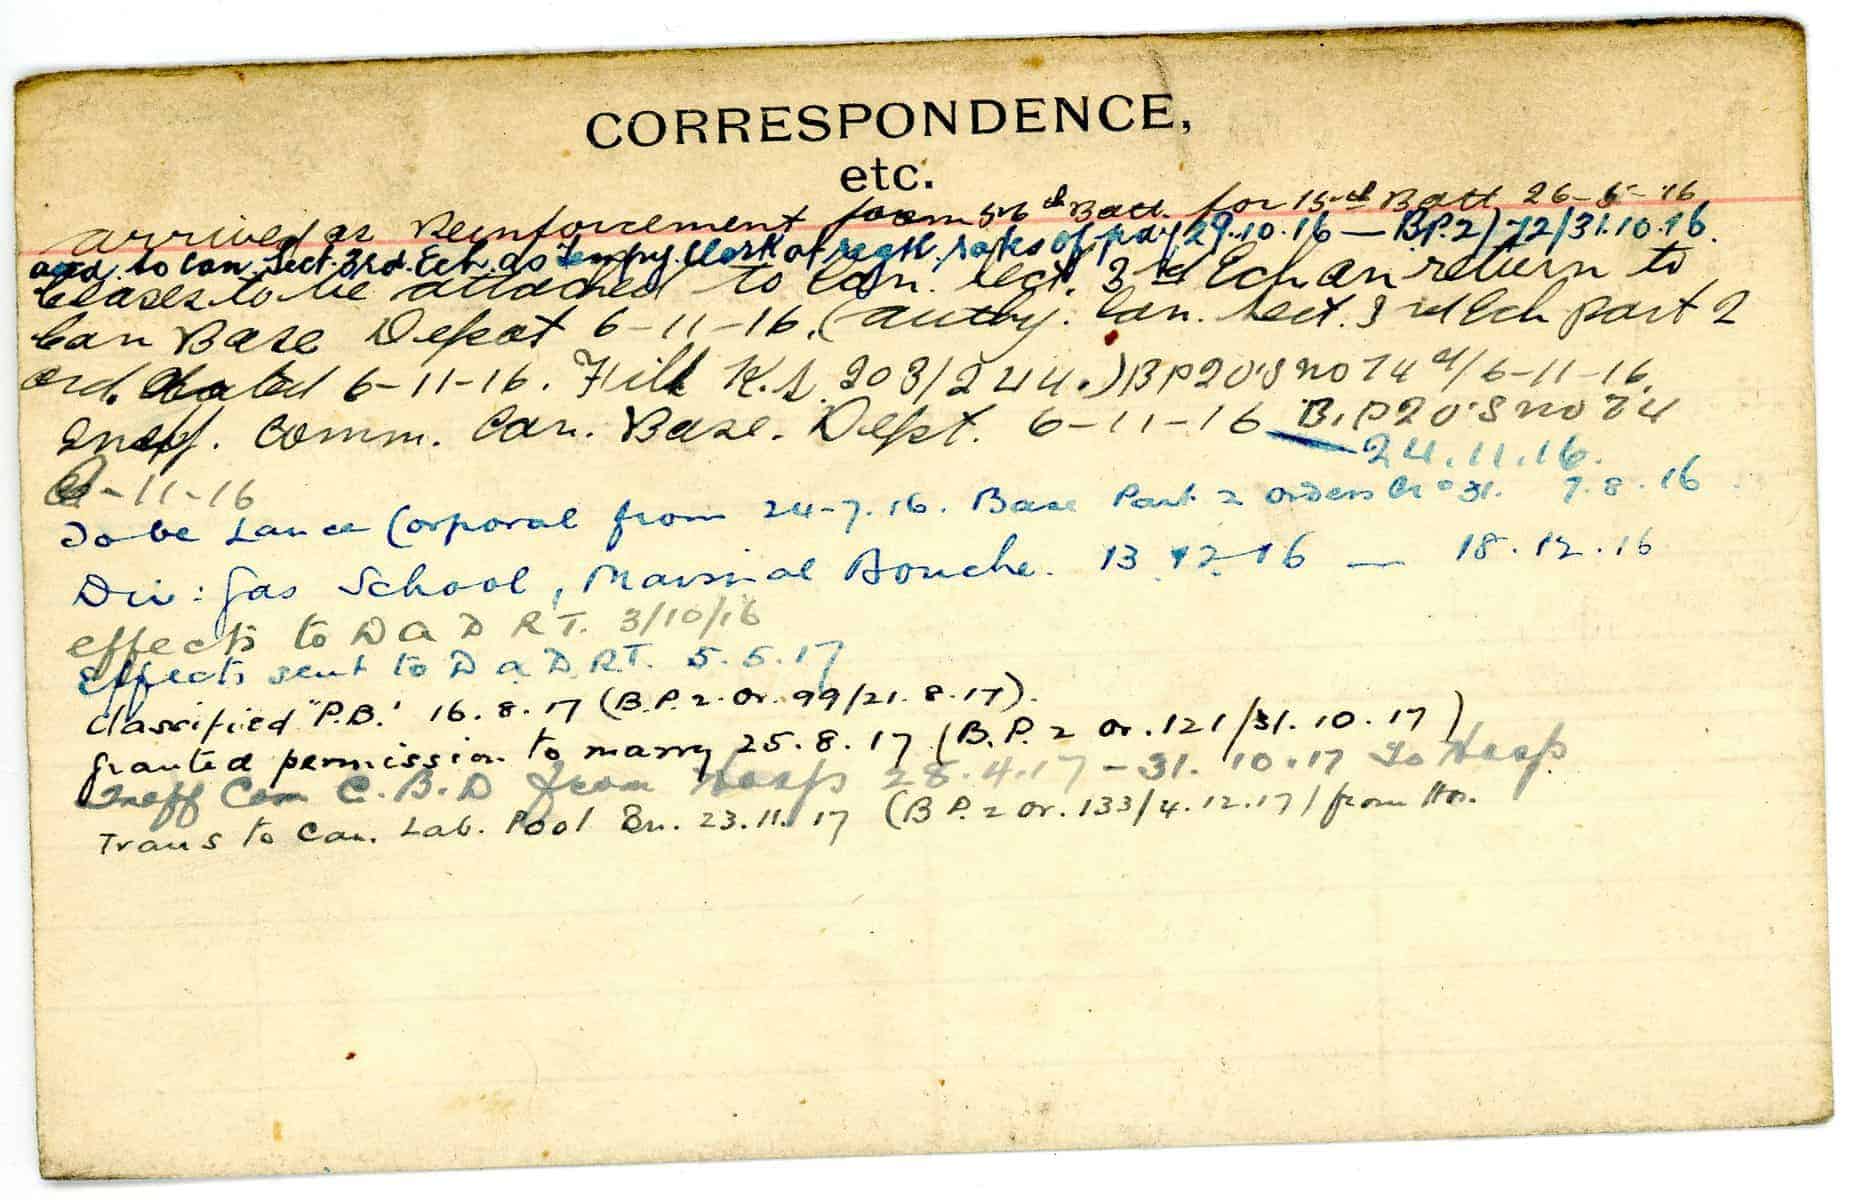 CORRESPONDENCE,
etc.
arrived as Reinforcement from 56th Batt. for 15th Batt 26-5-16
to Can. Sect. 3rd. Ech. as Tempy. Clerk at regtl. rates of pay 29.10.16 — B.P.2) 72/31.10.16.
Ceases to be attached to Can. Sect. 3rd Ech on return to
Can Base Depot 6-11-16. (authy. Can. Sect. 3rd Ech part 2
ord. dated 6-11-16. File K.S. 203/244.) BP20's no 74 /6-11-16.
Ineff. Comm. Can. Base. Dept. 6-11-16 B.P20's no 74
24.11.16.
-11-16
To be Lance Corporal from 24-7.16. Base Part 2 orders No 31. 7.8.16
Div: Gas School, Bouche. 13.12.16 — 18.12.16
effects to D A D R T. 3/10/16
Effects sent to D a D R T. 5.5.17
Classified "P.B." 16.8.17 (B.P.2. Or. 99/21.8.17).
Granted permission to marry 25.8.17 (B.P.2 Or. 121/31.10.17)
Ineff Com C.B.D from Hosp 28.4.17 - 31.10.17 To Hosp
Trans to Can. Lab. Pool Bn. 23.11.17 (B P.2 Or. 133/4.12.17) from